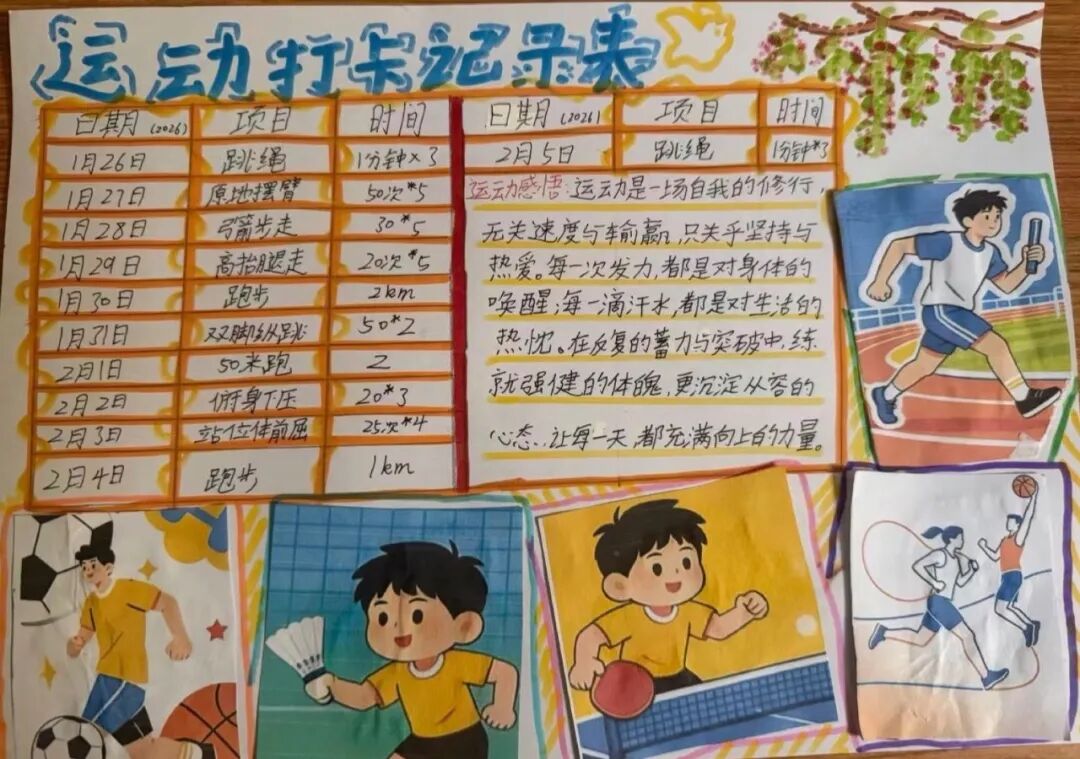 运动打卡记录表
日期(2026) 项目 时间
1月26日 跳绳 1分钟×3
1月27日 原地摆臂 50次*5
1月28日 弓箭步走 30*5
1月29日 高抬腿走 20次*5
1月30日 跑步 2km
1月31日 双脚纵跳 50*2
2月1日 50米跑 2
2月2日 俯身下压 20*3
2月3日 站位体前屈 25次*4
2月4日 跑步 1km
日期(2026) 项目 时间
2月5日 跳绳 1分钟*3
运动感悟:运动是一场自我的修行,
无关速度与输赢,只关乎坚持与
热爱。每一次发力,都是对身体的
唤醒;每一滴汗水,都是对生活的
热忱。在反复的蓄力与突破中,练
就强健的体魄,更沉淀从容的
心态,让每一天,都充满向上的力量。